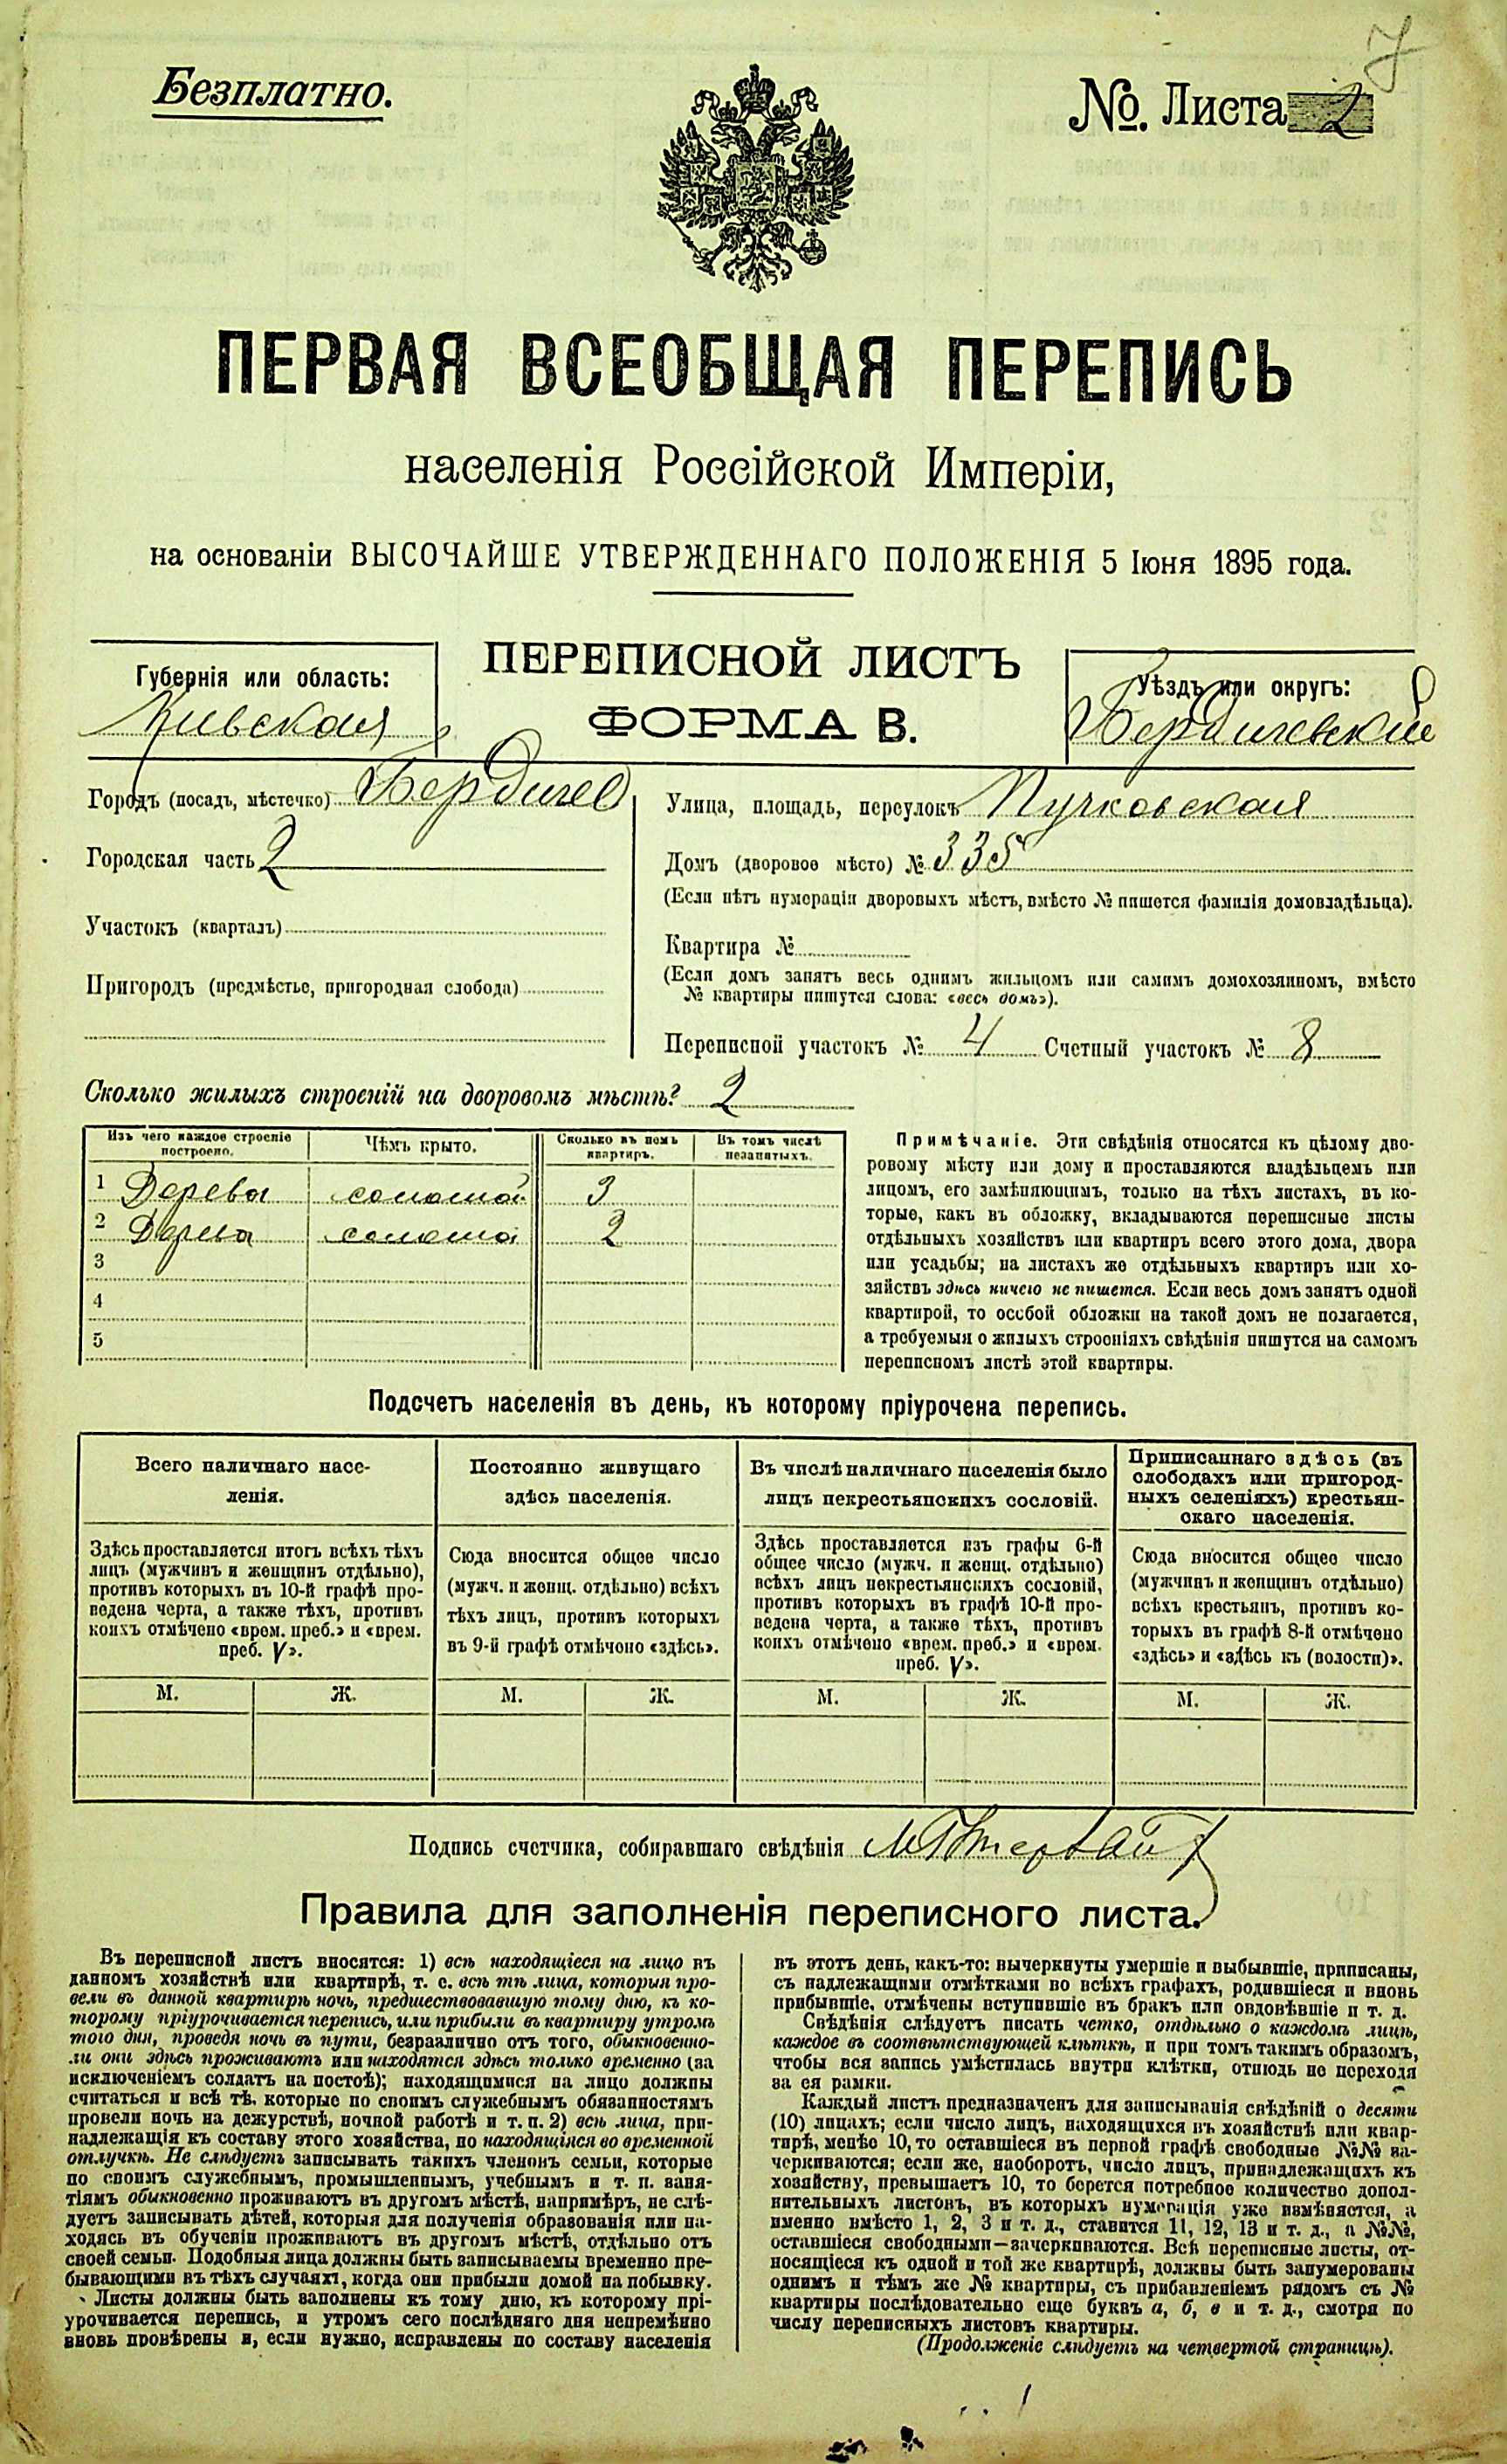 7
Безплатно.
№. Листа 2
ПЕРВАЯ ВСЕОБЩАЯ ПЕРЕПИСЬ
населенія Россійской Имперіи,
на основаніи ВЫСОЧАЙШЕ УТВЕРЖДЕННАГО ПОЛОЖЕНІЯ 5 Іюня 1895 года.
Губернія или область:
Кіевская
ПЕРЕПИСНОЙ ЛИСТЪ
ФОРМА В.
Уѣздъ или округъ:
Бердичевскій
Городъ (посадъ, мѣстечко) Бердичев
Городская часть 2
Участокъ (кварталъ)
Пригородъ (предмѣстье, пригородная слобода)
Улица, площадь, переулокъ Пучковская
Домъ (дворовое мѣсто) № 335
(Если нѣтъ нумераціи дворовыхъ мѣстъ, вмѣсто № пишется фамилія домовладѣльца).
Квартира №
(Если домъ занятъ весь однимъ жильцомъ или самимъ домохозяиномъ, вмѣсто
№ квартиры пишутся слова: «весь домъ»).
Переписной участокъ № 4 Счетный участокъ № 8
Сколько жилыхъ строеній на дворовомъ мѣстѣ? 2
Изъ чего каждое строеніе
построено.
Чѣмъ крыто.
Сколько въ немъ
квартиръ.
Въ томъ числѣ
незанятыхъ.
1 Дерева соломой 3
2 Дерева соломой 2
3
4
5
Примѣчаніе. Эти свѣдѣнія относятся къ цѣлому дво-
ровому мѣсту или дому и проставляются владѣльцемъ или
лицомъ, его замѣняющимъ, только на тѣхъ листахъ, въ ко-
торые, какъ въ обложку, вкладываются переписные листы
отдѣльныхъ хозяйствъ или квартиръ всего этого дома, двора
или усадьбы; на листахъ же отдѣльныхъ квартиръ или хо-
зяйствъ здѣсь ничего не пишется. Если весь домъ занятъ одной
квартирой, то особой обложки на такой домъ не полагается,
а требуемыя о жилыхъ строеніяхъ свѣдѣнія пишутся на самомъ
переписномъ листѣ этой квартиры.
Подсчетъ населенія въ день, къ которому пріурочена перепись.
Всего наличнаго насе-
ленія.
Здѣсь проставляется итогъ всѣхъ тѣхъ
лицъ (мужчинъ и женщинъ отдѣльно),
противъ которыхъ въ 10-й графѣ про-
ведена черта, а также тѣхъ, противъ
коихъ отмѣчено «врем. преб.» и «врем.
преб. V».
М. Ж.
Постоянно живущаго
здѣсь населенія.
Сюда вносится общее число
(мужч. и женщ. отдѣльно) всѣхъ
тѣхъ лицъ, противъ которыхъ
въ 9-й графѣ отмѣчено «здѣсь».
М. Ж.
Въ числѣ наличнаго населенія было
лицъ некрестьянскихъ сословій.
Здѣсь проставляется изъ графы 6-й
общее число (мужч. и женщ. отдѣльно)
всѣхъ лицъ некрестьянскихъ сословій,
противъ которыхъ въ графѣ 10-й про-
ведена черта, а также тѣхъ, противъ
коихъ отмѣчено «врем. преб.» и «врем.
преб. V».
М. Ж.
Приписаннаго здѣсь (въ
слободахъ или пригород-
ныхъ селеніяхъ) крестьян-
скаго населенія.
Сюда вносится общее число
(мужчинъ и женщинъ отдѣльно)
всѣхъ крестьянъ, противъ ко-
торыхъ въ графѣ 8-й отмѣчено
«здѣсь» и «здѣсь къ (волости)».
М. Ж.
Подпись счетчика, собиравшаго свѣдѣнія
Правила для заполненія переписного листа.
Въ переписной листъ вносятся: 1) всѣ находящіеся на лицо въ
данномъ хозяйствѣ или квартирѣ, т. е. всѣ тѣ лица, которыя про-
вели въ данной квартирѣ ночь, предшествовавшую тому дню, къ ко-
торому пріурочивается перепись, или прибыли въ квартиру утромъ
того дня, проведя ночь въ пути, безразлично отъ того, обыкновенно-
ли они здѣсь проживаютъ или находятся здѣсь только временно (за
исключеніемъ солдатъ на постоѣ); находящимися на лицо должны
считаться и всѣ тѣ, которые по своимъ служебнымъ обязанностямъ
провели ночь на дежурствѣ, ночной работѣ и т. п. 2) всѣ лица, при-
надлежащія къ составу этого хозяйства, но находящіяся во временной
отлучкѣ. Не слѣдуетъ записывать такихъ членовъ семьи, которые
по своимъ служебнымъ, промышленнымъ, учебнымъ и т. п. заня-
тіямъ обыкновенно проживаютъ въ другомъ мѣстѣ, напримѣръ, не слѣ-
дуетъ записывать дѣтей, которыя для полученія образованія или на-
ходясь въ обученіи проживаютъ въ другомъ мѣстѣ, отдѣльно отъ
своей семьи. Подобныя лица должны быть записываемы временно пре-
бывающими въ тѣхъ случаяхъ, когда они прибыли домой на побывку.
Листы должны быть заполнены къ тому дню, къ которому прі-
урочивается перепись, и утромъ сего послѣдняго дня непремѣнно
вновь провѣрены и, если нужно, исправлены по составу населенія
въ этотъ день, какъ-то: вычеркнуты умершіе и выбывшіе, приписаны,
съ надлежащими отмѣтками во всѣхъ графахъ, родившіеся и вновь
прибывшіе, отмѣчены вступившіе въ бракъ или овдовѣвшіе и т. д.
Свѣдѣнія слѣдуетъ писать четко, отдѣльно о каждомъ лицѣ,
каждое въ соотвѣтствующей клѣткѣ, и при томъ такимъ образомъ,
чтобы вся запись умѣстилась внутри клѣтки, отнюдь не переходя
за ея рамки.
Каждый листъ предназначенъ для записыванія свѣдѣній о десяти
(10) лицахъ; если число лицъ, находящихся въ хозяйствѣ или квар-
тирѣ, менѣе 10, то оставшіеся въ первой графѣ свободные №№ за-
черкиваются; если же, наоборотъ, число лицъ, принадлежащихъ къ
хозяйству, превышаетъ 10, то берется потребное количество допол-
нительныхъ листовъ, въ которыхъ нумерація уже измѣняется, а
именно вмѣсто 1, 2, 3 и т. д., ставится 11, 12, 13 и т. д., а №№,
оставшіеся свободными—зачеркиваются. Всѣ переписные листы, от-
носящіеся къ одной и той же квартирѣ, должны быть занумерованы
однимъ и тѣмъ же № квартиры, съ прибавленіемъ рядомъ съ №
квартиры послѣдовательно еще буквъ а, б, в и т. д., смотря по
числу переписныхъ листовъ квартиры.
(Продолженіе слѣдуетъ на четвертой страницѣ).